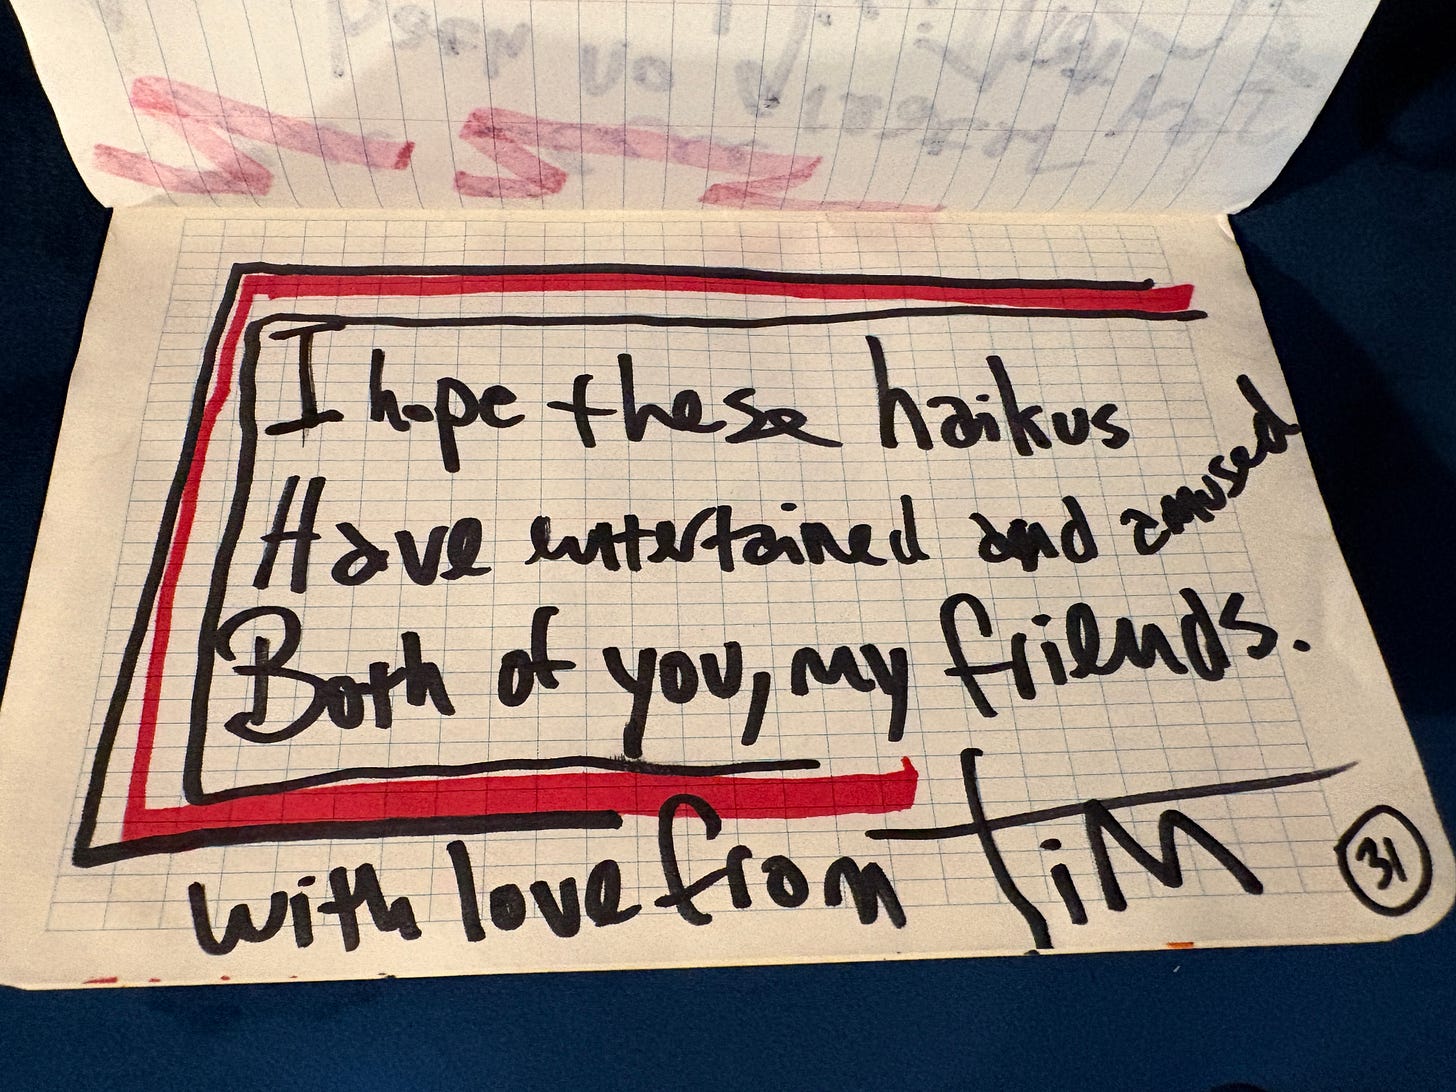 I hope these haikus
Have entertained and amused
Both of you, my friends.
with love from TiM
31